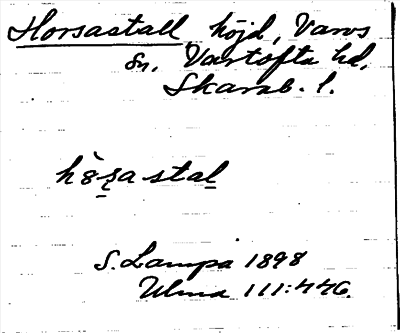 Horsastall höjd, Varvs
sn, Vartofta hd,
Skarab. l.
S. Lampa 1898
Ulma 111:446.